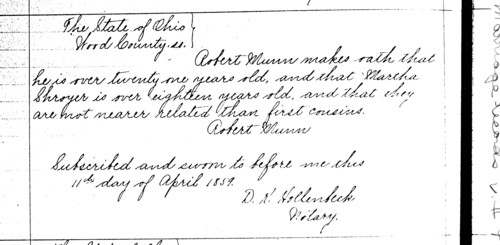 The State of Ohio
Wood County ss.
Robert Munn makes oath that
he is over twenty one years old, and that Martha
Shroyer is over eighteen years old, and that they
are not nearer related than first cousins.
Robert Munn
Subscribed and sworn to before me this
11th day of April 1859.
D. K. Hollenbeck
Notary.